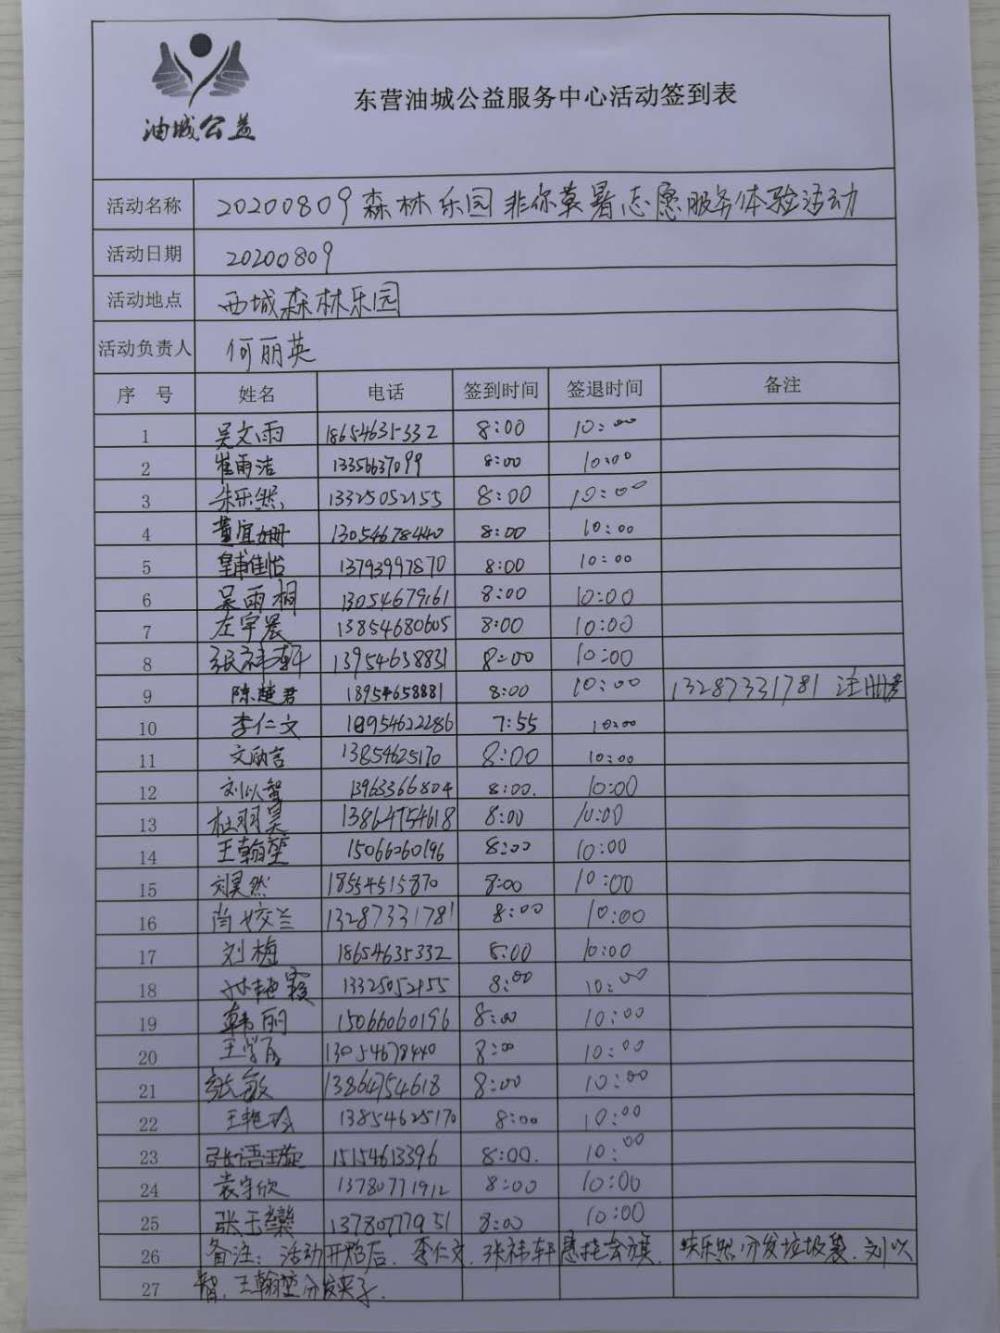 油城公益
东营油城公益服务中心活动签到表
活动名称 20200809森林乐园非你莫暑志愿服务体验活动
活动日期 20200809
活动地点 西城森林乐园
活动负责人 何丽英
序 号 姓名 电话 签到时间 签退时间 备注
1 吴文雨 18654635332 8:00 10:00
2 崔雨洁 13356637099 8:00 10:00
3 朱乐然 13325052155 8:00 10:00
4 董宜姗 13054678440 8:00 10:00
5 皇甫佳怡 13793997870 8:00 10:00
6 吴雨桐 13054679161 8:00 10:00
7 左宇晨 13854680605 8:00 10:00
8 张祎轩 13954638831 8:00 10:00
9 陈楚君 18954658881 8:00 10:00 13287331781 注册号
10 李仁文 18954622286 7:55 10:00
11 文励言 13854625170 8:00 10:00
12 刘以智 13963366804 8:00. 10:00
13 杜羽昊 13864754618 8:00 10:00
14 王翰堃 15066060196 8:00 10:00
15 刘昊然 18554515870 8:00 10:00
16 尚姣兰 13287331781 8:00 10:00
17 刘梅 18654635332 8:00 10:00
18 艳霞 13325052155 8:00 10:00
19 韩丽 15066060196 8:00 10:00
20 王 13054678440 8:00 10:00
21 张敏 13864754618 8:00 10:00
22 王艳玲 13854625170 8:00 10:00
23 张语璇 15154613396 8:00. 10:00
24 袁守欣 13780771912 8:00 10:00
25 张玉 13780777951 8:00 10:00
26 备注：活动开始后，李仁文，张祎轩 会旗，朱乐然分发垃圾袋，刘以
27 智，王翰堃分发夹子.